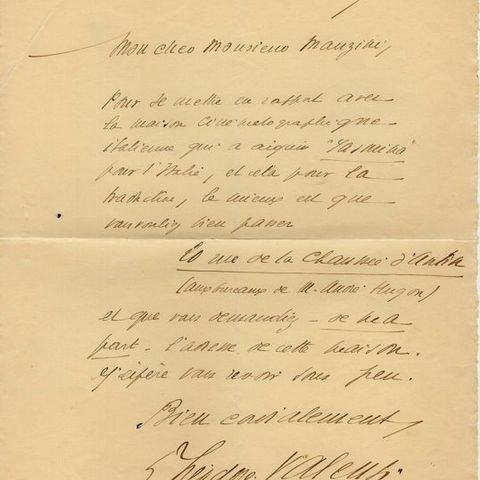 Mon cher Monsieur Manzini,
Pour se mettre en rapport avec
la maison cinématographique
italienne qui a acquis "Yasmina"
pour l'Italie, et cela pour la
traduction, le mieux est que
vous vouliez bien passer
rue de la Chaussée d'Antin
(aux bureaux de M. André Hugon)
et que vous demandiez - de ma
part - l'adresse de cette maison.
J'espère vous revoir sous peu.
Bien cordialement,
Théodore Valensi